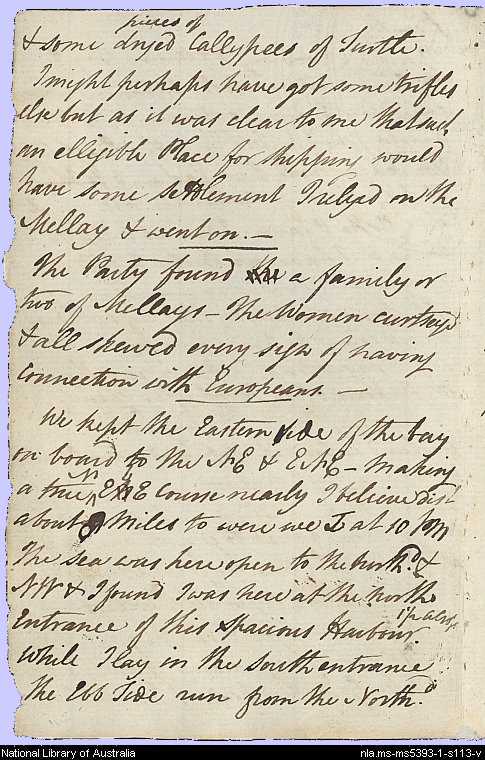 pieces of
& some dryed Callypees of Turtle.
I might perhaps have got some trifles
else but as it was clear to me that such
an elligible Place for shipping would
have some settlement I relyed on the
Mellay & went on. —
The Party found the a family or
two of Mellays — The Women curtsey'd
& all shewed every sign of having
connection with Europeans. —
We kept the Eastern side of the bay
on board to the NE & ENE — making
a true N E course nearly I believe dist
about 8 Miles to were we I at 10 PM
The sea was here open to the north.d &
NW & I found I was here at the north
Entrance of this spacious Harbour
while I lay in the south entrance
the Ebb Tide run from the North.d
National Library of Australia
nla.ms-ms5393-1-s113-v